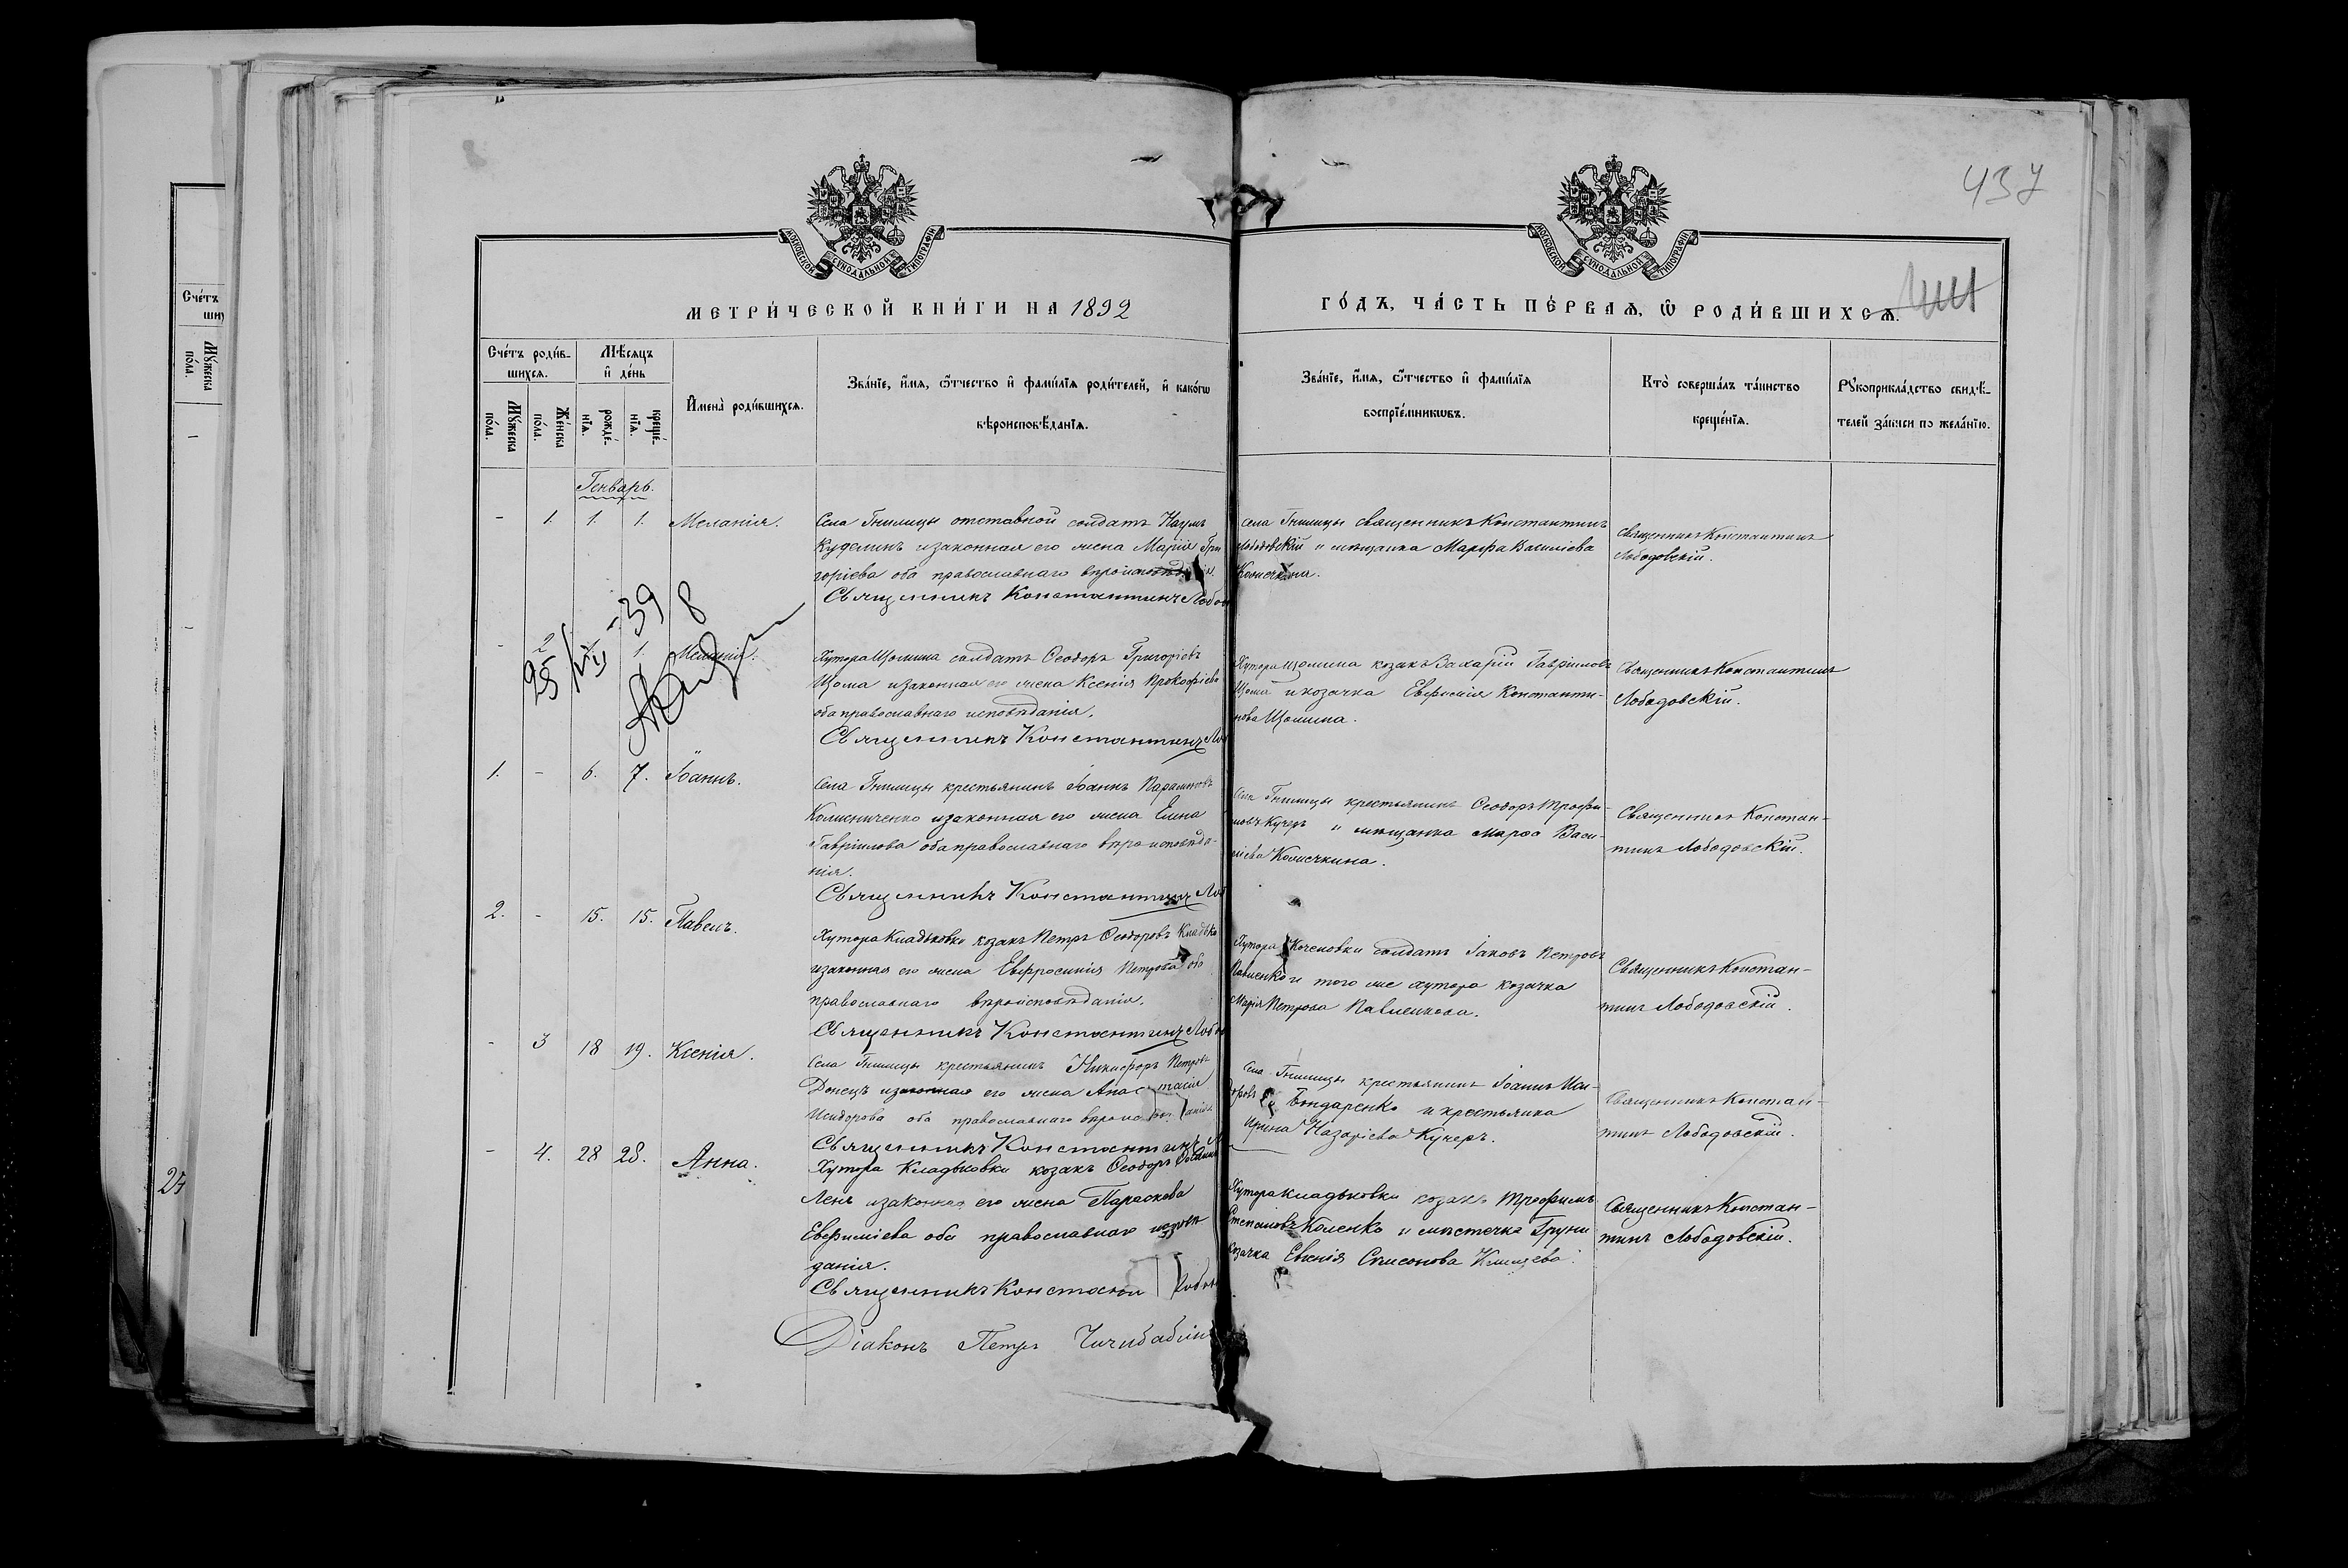 437
МОСКОВСКОЙ СУНОДАЛЬНОЙ ТИПОГРАФІИ
МОСКОВСКОЙ СУНОДАЛЬНОЙ ТИПОГРАФІИ
МЕТРИ́ЧЕСКОЙ КНИ́ГИ НА 1892
ГО́ДЪ, ЧА́СТЬ ПЕ́РВАѦ, Ѡ РОДИ́ВШИХСѦ.
Сче́тъ роди́в-
шихсѧ.
Мѣ́сѧцъ
и҆ де́нь
Мꙋ́жеска
по́ла.
Же́нска
по́ла.
рожде́-
нїѧ.
креще́-
нїѧ.
И҆мена̀ роди́вшихсѧ.
Зва́нїе, и҆́мѧ, ѻ҆́тчество и҆ фами́лїѧ роди́телей, и҆ како́гѡ
вѣроисповѣ́данїѧ.
Зва́нїе, и҆́мѧ, ѻ҆́тчество и҆ фами́лїѧ
воспрїе́мникѡвъ.
Кто̀ соверша́лъ та́инство
креще́нїѧ.
Рꙋкоприкла́дство свидѣ́-
телей за́писи по жела́нїю.
Генварь.
- 1. 1. 1. Меланія.
Села Гнилицы отставной солдатъ Наумъ
Куделинъ и законная его жена Марія Гри
горіева оба православнаго
Священникъ Константинъ Лобо
села Гнилицы священникъ Константинъ
Лободовскій и мѣщанка Марѳа Василіева
священникъ Константинъ
Лободовскій.
25/VIII-39
8
- 2 1. 1. Меланія.
Хутора Щомина солдатъ Ѳеодоръ Григоріевъ
Щома и законная его жена Ксенія Прокофіева
оба православнаго исповѣданія.
Священникъ Константинъ Лоб
Хутора Щомина козакъ Захарій Гавріиловъ
Щома и козачка Евфимія Константи-
нова Щомина.
Священникъ Константинъ
Лободовскій.
1. - 6. 7. Іоаннъ.
Села Гнилицы крестьянинъ Іоаннъ
Колисниченко и законная его жена Елена
Гавріилова оба православнаго вѣроисповѣда-
нія.
Священникъ Константинъ Лоб
Села Гнилицы крестьянинъ Ѳеодоръ Трофи-
мовъ Кучеръ и мѣщанка Марѳа Васи-
ліева Колисчкина.
Священникъ Констан-
тинъ Лободовскій.
2. - 15. 15. Павелъ.
Хутора Кладьковки козакъ Петръ Ѳеодоровъ Кладько
и законная его жена Евфросинія Петрова оба
православнаго вѣроисповѣданія.
Священникъ Константинъ Лобо
Хутора солдатъ Іаковъ Петровъ
Павленко и того же хутора козачка
Марія Петрова Павленкова.
Священникъ Констан-
тинъ Лободовскій.
- 3 18 19. Ксенія.
Села Гнилицы крестьянинъ Никифоръ Петровъ
Донецъ и законная его жена Анастасія
Исидорова оба православнаго
Священникъ Константинъ
Села Гнилицы крестьянинъ Іоаннъ Иси-
доровъ Бондаренко и крестьянка
Ирина Назаріева Кучеръ.
Священникъ Констан-
тинъ Лободовскій.
- 4. 28 28. Анна.
Хутора Кладьковки козакъ Ѳеодоръ
Ленъ и законная его жена Параскева
Евфиміева оба православнаго исповѣ
данія.
Священникъ Константи Лобо
Хутора Кладьковки козакъ Трофимъ
Степановъ Коленко и мѣстечка Груни
козачка Евгенія
Священникъ Констан-
тинъ Лободовскій.
Діаконъ Петръ Чичибабинъ